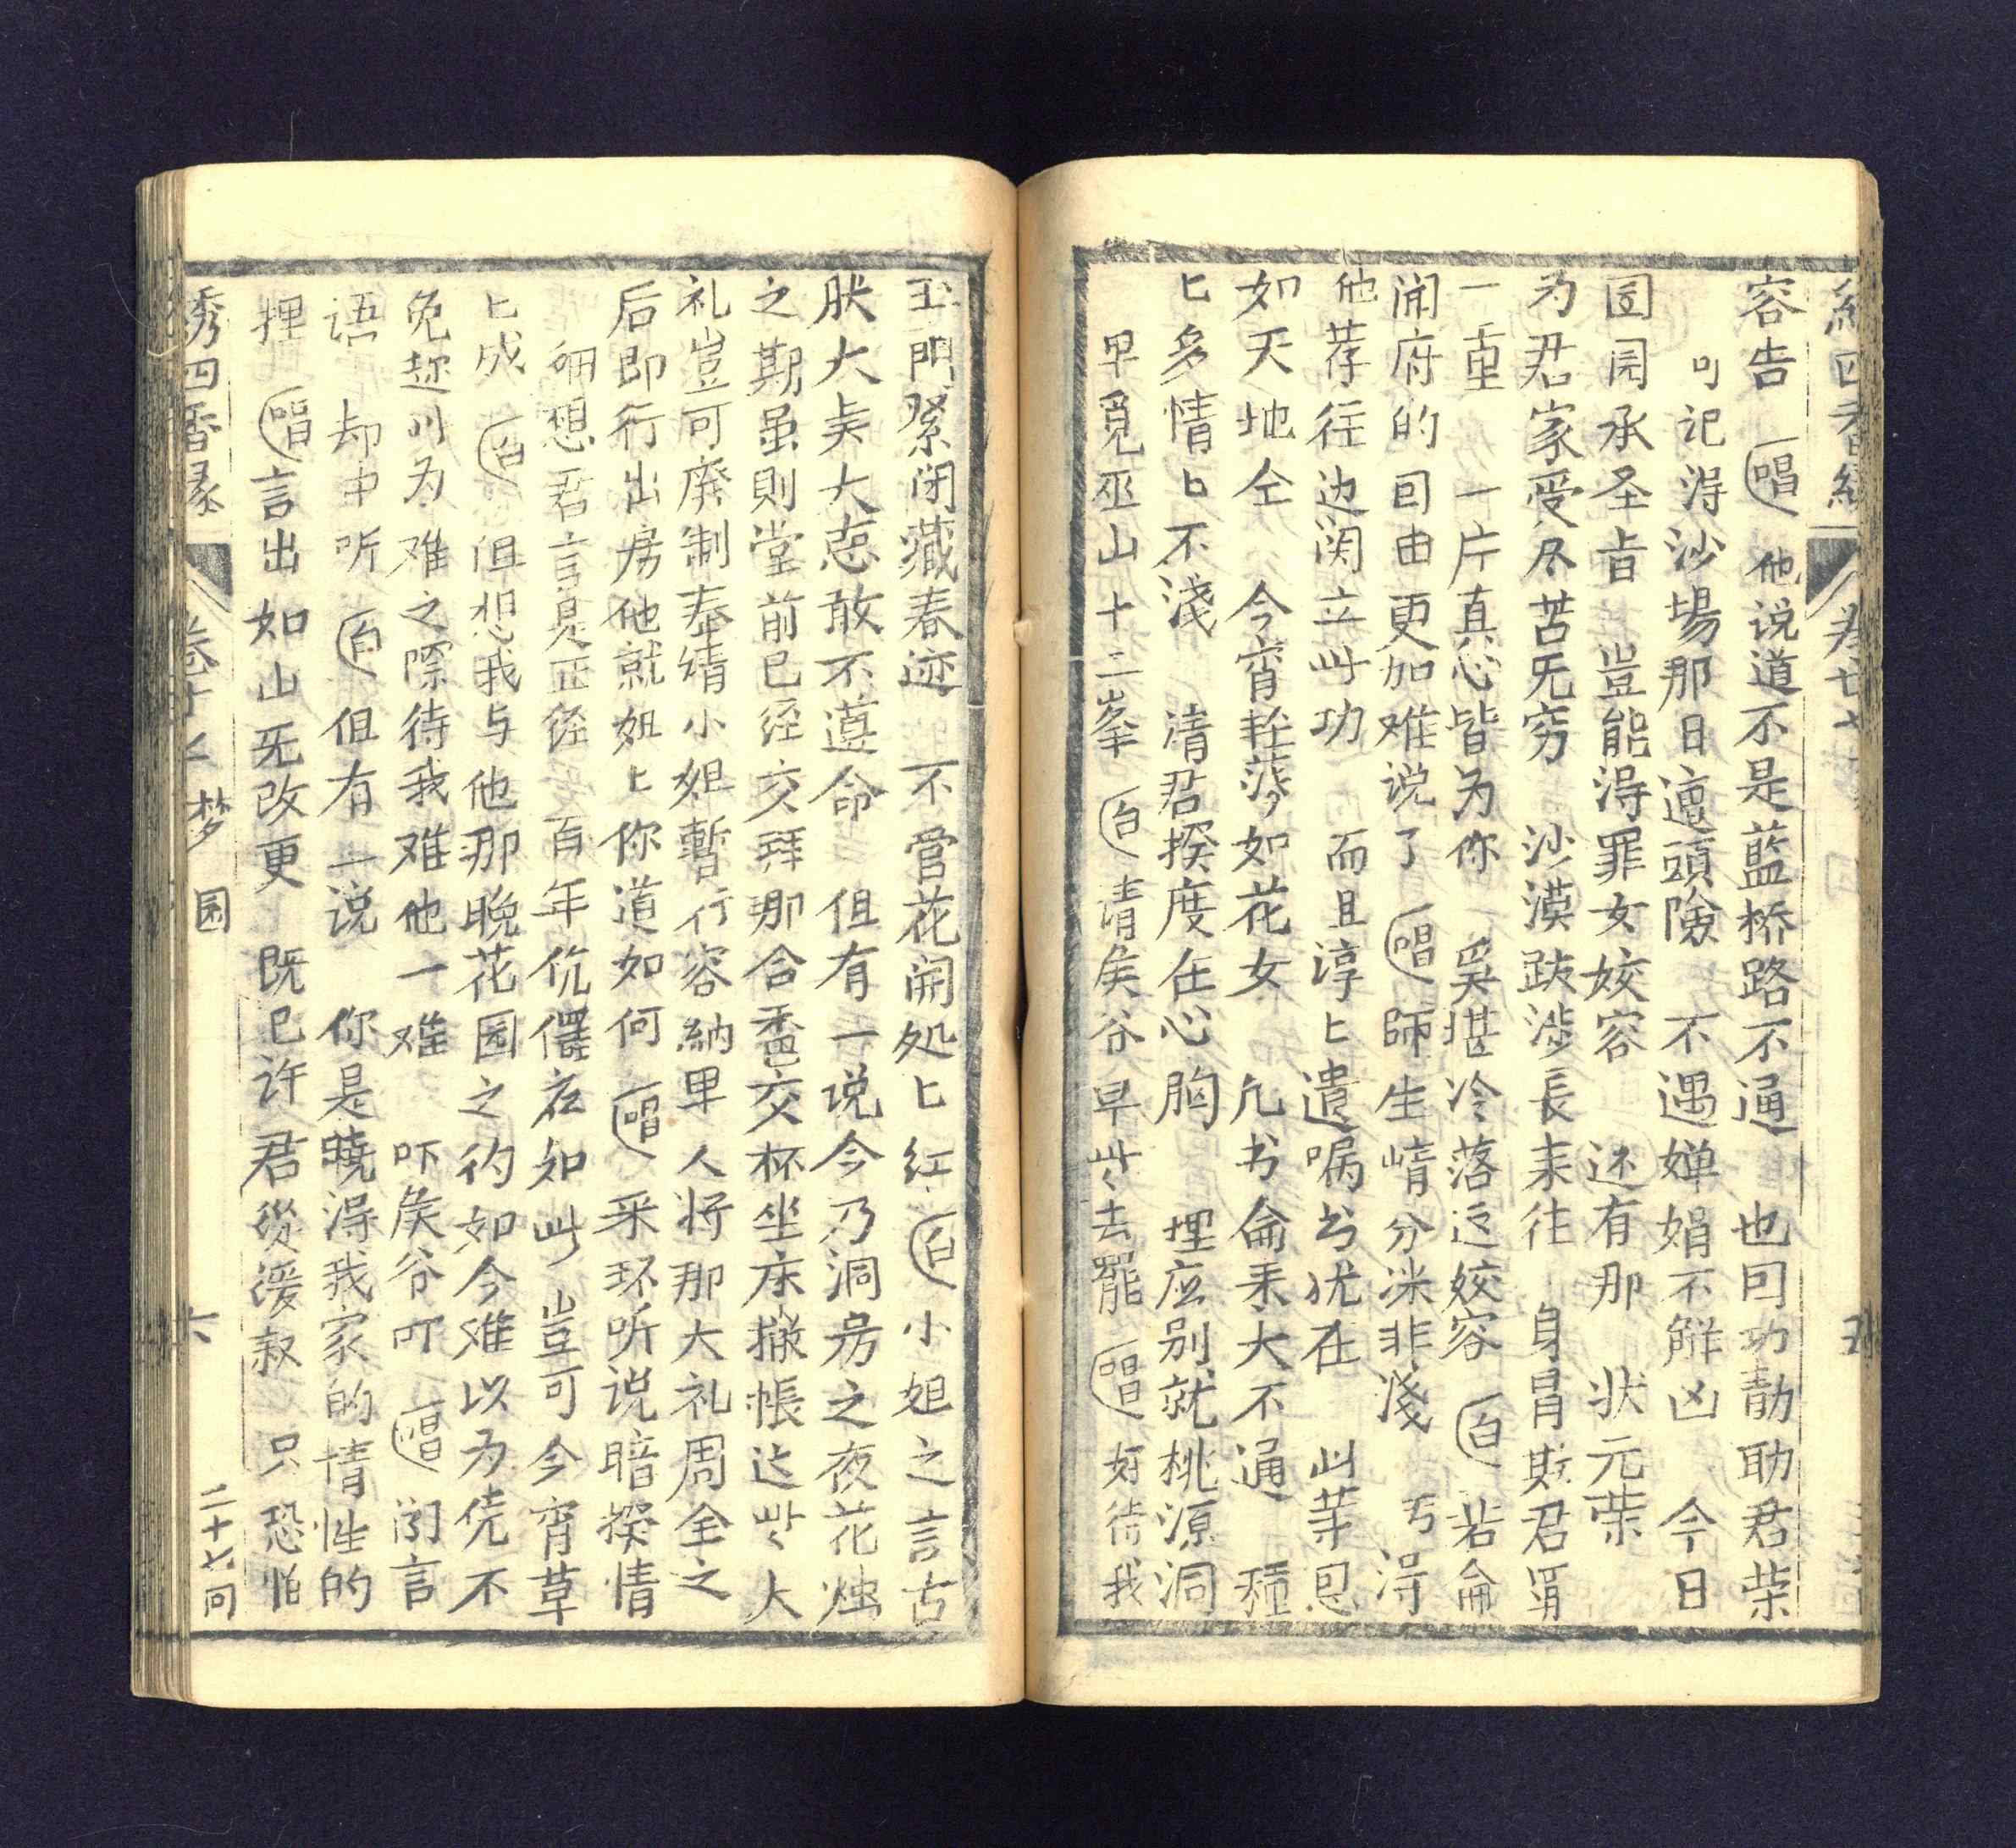 容告 唱 他说道不是藍桥路不通 也回功勣助君荣
叫记淂沙場那日遭頭險 不遇婵娟不觧凶 今日
囬园承圣旨 豈能淂罪女姣容 还有那 状元荣
为君家受尽苦旡穷 沙漠跋渉長来往 身冒欺君
一重 一片真心皆为你 奚堪冷落这姣容 白 若侖
闹府的囬由更加难说了 唱 師生情分深非淺 丐淂
他荐往边関立此功 而且淳匕遺嘱兮犹在 此䓁恩
如天地仝 今宵輕薄如花女 凢书侖来大不通 種
匕多情匕不淺 清君揆度在心胸 埋应别就桃源洞
早覓巫山十二峯 白 请矦谷早些去罷 唱 好待我
玉門緊闭藏春迹 不管花開処匕红 白 小姐之言古
朕大矣大志敢不遵命 但有一说今乃洞房之夜花烛
之期虽則堂前已经交拜那合卺交杯坐床撤帳这些大
礼豈可廃制奉情小姐暫行容納早人将那大礼周全之
后即行出房他就姐匕你道如何 唱 采环听说暗揆情
细想君言是正经 百年伉儷在如此 豈可今宵草
匕成 白 但想我与他那晚花园之约如今难以为凭不
免趂此为难之際待我难他一难 吓矦谷吖 唱 闻言
语 却中听 白 但有一说 你是曉淂我家的情性的
挰 唱 言出如山旡改更 既已许君從湲叙 只恐怕
绣四香縁 卷廿七 梦园 六 二十七囬